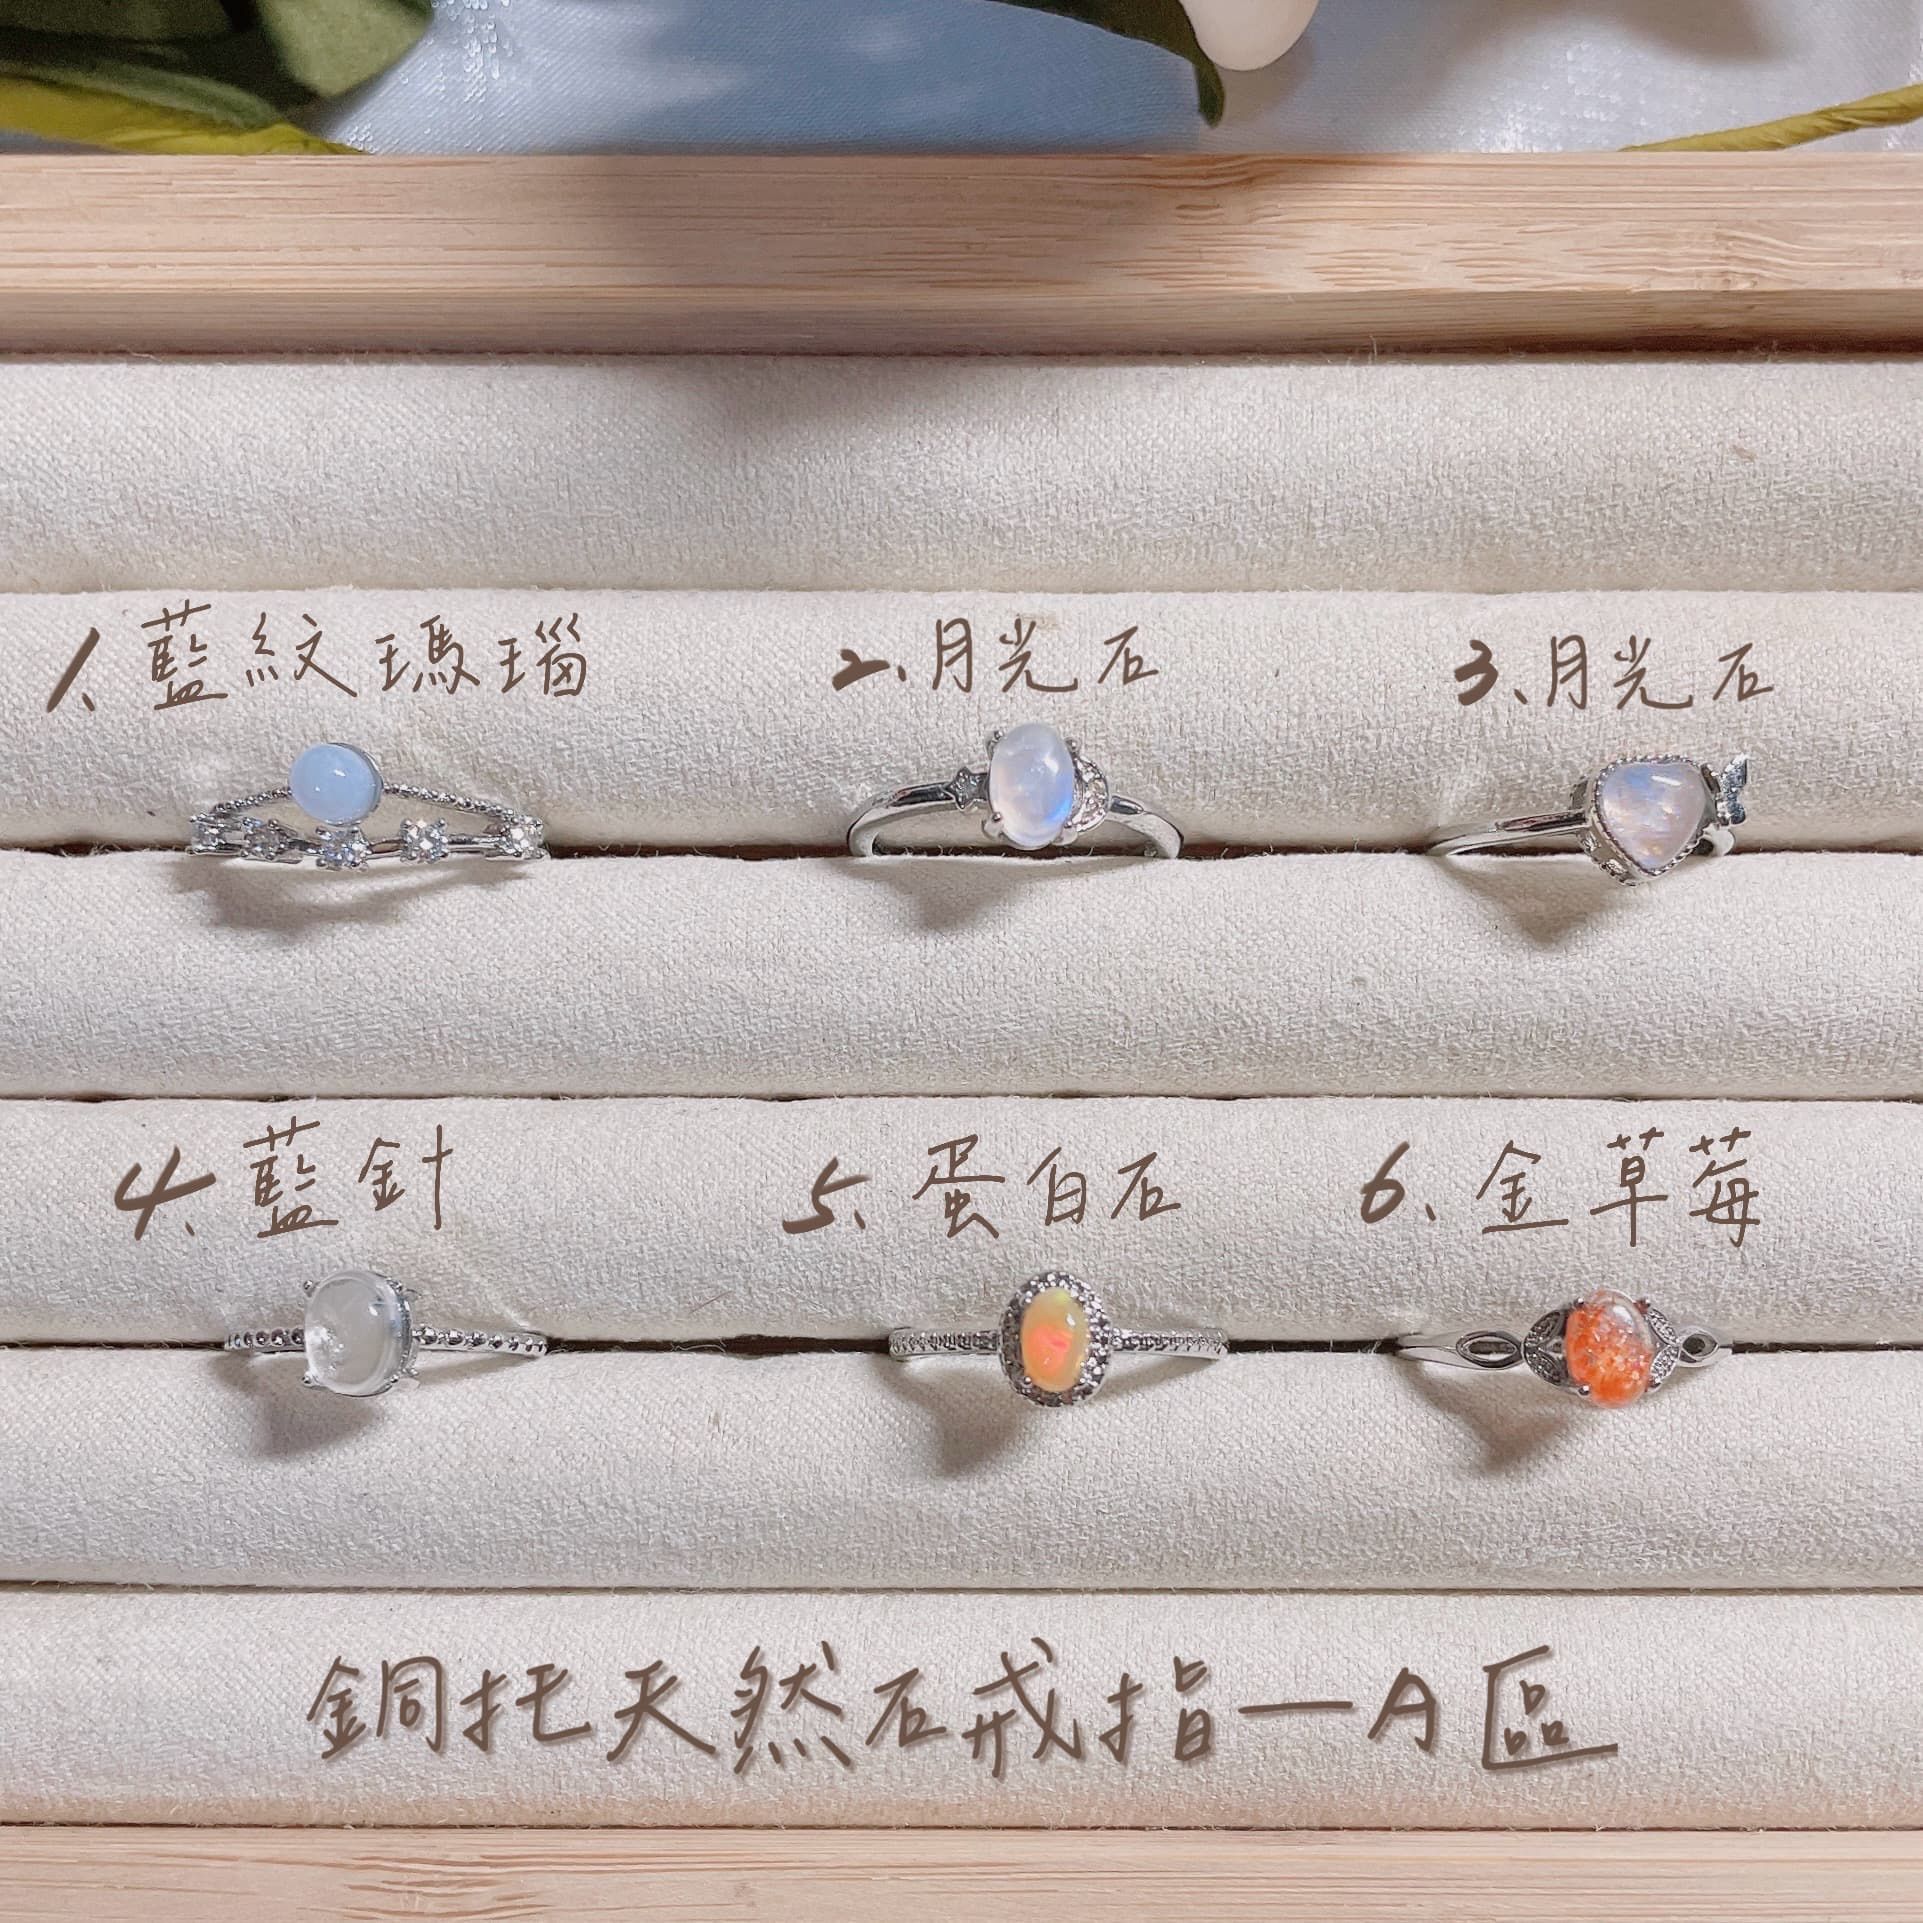 1、藍紋瑪瑙
2、月光石
3、月光石
4、藍針
5、蛋白石
6、金草莓
銅托天然石戒指—A區